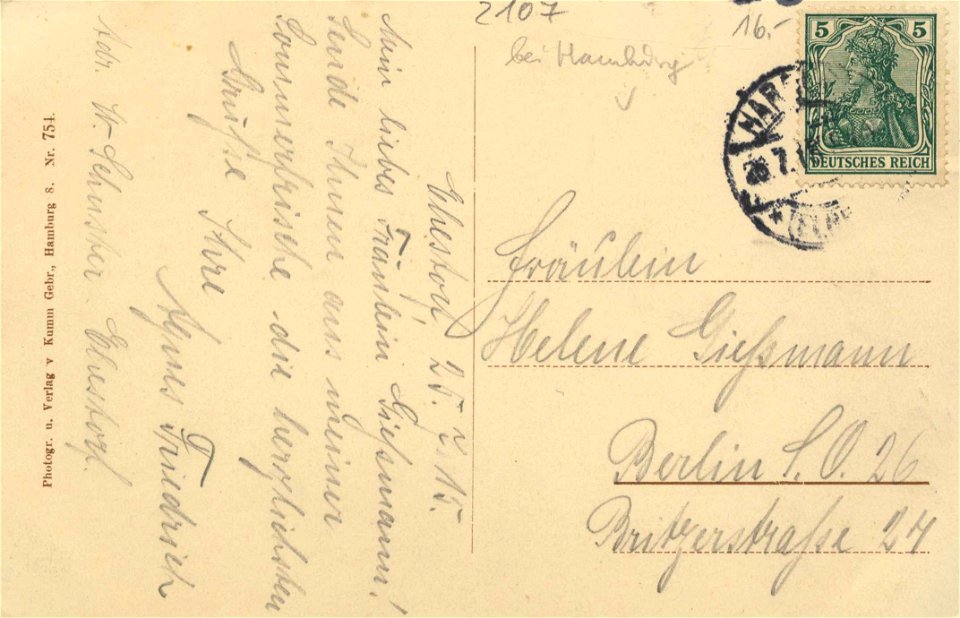 2107
16.-
bei Hamburg
5 5
DEUTSCHES REICH
HAR
7.15
Ehestorf, 25.7.15.
Mein liebes Fräulein Gießmann!
Sende Ihnen aus meiner
Sommerfrische die herzlichsten
Grüße
Ihre
Agnes Friedrich
Adr. W. Schuster Ehestorf.
Fräulein
Helene Gießmann
Berlin S.O. 26
Britzerstraße 27
Photogr. u. Verlag v Kumm Gebr., Hamburg 8. Nr. 754.